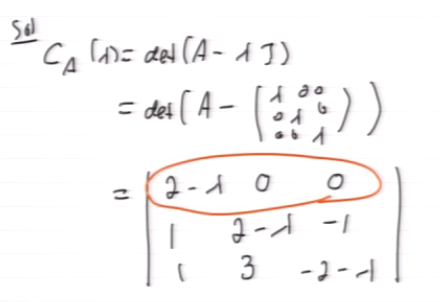 Sol
C_A (λ) = det(A - λ I)
= det(A - (λ 0 0
0 λ 0
0 0 λ))
= | 2-λ 0 0 |
| 1 2-λ -1 |
| 1 3 -2-λ |